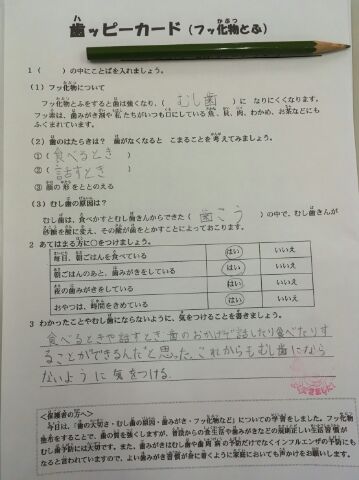 歯ッピーカード（フッ化物とふ）
1 （ ）の中にことばを入れましょう。
（1）フッ化物について
フッ化物とふをすると歯は強くなり、（ むし歯 ）に なりにくくなります。
フッ素は、歯みがき剤や私たちがいつも口にしている魚、貝、肉、わかめ、お茶などにも
ふくまれています。
（2）歯のはたらきは？ 歯がなくなると こまることを考えてみましょう。
①（食べるとき）
②（話すとき）
③ 顔の形をととのえる
（3）むし歯の原因は？
むし歯は、食べかすとむし歯きんからできた（ 歯こう ）の中で、むし歯きんが
砂糖を酸に変え、その酸が歯をとかすことによっておこります。
2 あてはまる方に○をつけましょう。
毎日、朝ごはんを食べている はい いいえ
朝ごはんのあと、歯みがきをしている はい いいえ
夜の歯みがきをしている はい いいえ
おやつは、時間をきめている はい いいえ
3 わかったことやむし歯にならないように、気をつけることを書きましょう。
食べるときや話すとき、歯のおかげで話したり食べたりす
ることができるんだと思った。これからもむし歯になら
ないように気をつける。
＜保護者の方へ＞
今日は、「歯の大切さ・むし歯の原因・歯みがき・フッ化物など」についての学習をしました。フッ化物
塗布をすることで、歯の質を強くしますが、普段からの食生活や歯みがきなどの規則正しい生活習慣が
むし歯予防には大切です。また、歯みがきはむし歯や歯周病の予防だけでなくインフルエンザの予防にも
なると言われていますので、よい歯みがき習慣が身に着くように家庭においても声かけをお願いします。